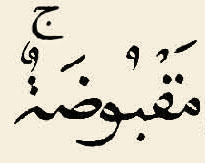 مَقْبُوضَةٌۚ